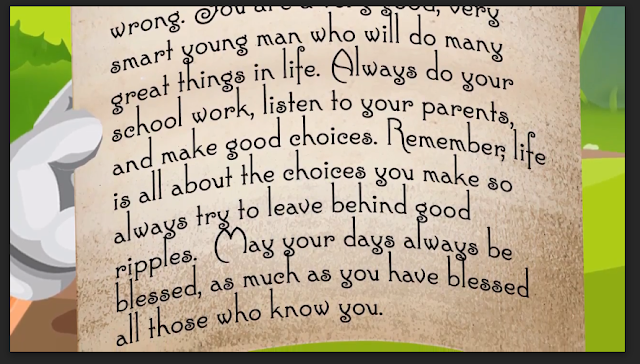 wrong. You are a very good, very
smart young man who will do many
great things in life. Always do your
school work, listen to your parents,
and make good choices. Remember, life
is all about the choices you make so
always try to leave behind good
ripples. May your days always be
blessed, as much as you have blessed
all those who know you.